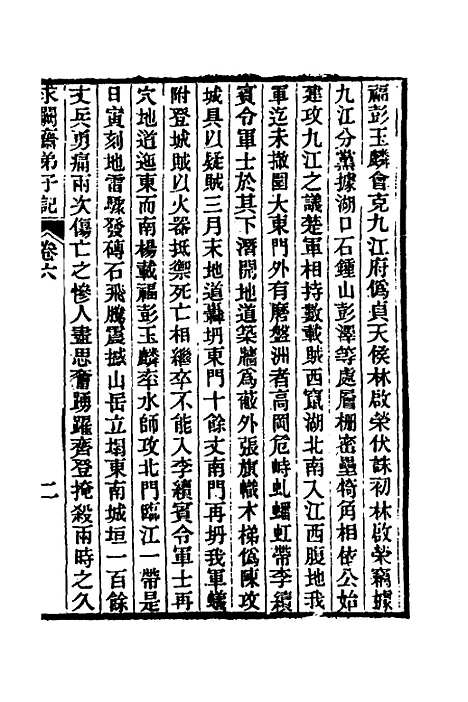 福彭玉麟會克九江府偽貞天侯林啟榮伏誅初林啟榮竊據
九江分黨據湖口石鍾山彭澤等處層栅密壘犄角相依公始
建攻九江之議楚軍相持數載賊西竄湖北南入江西腹地我
軍迄未撤圍大東門外有磨盤洲者高岡危峙虬蟠虹帶李續
賓令軍士於其下潛開地道築牆為蔽外張旗幟木梯偽陳攻
城具以疑賊三月末地道轟坍東門十餘丈南門再坍我軍蟻
附登城賊以火器抵禦死亡相繼卒不能入李續賓令軍士再
穴地道迤東而南楊載福彭玉麟率水師攻北門臨江一帶是
日寅刻地雷驟發磚石飛騰震撼山岳立塌東南城垣一百餘
丈兵勇痛兩次傷亡之慘人盡思奮踴躍齊登掩殺兩時之久
求闕齋弟子記 卷六 二